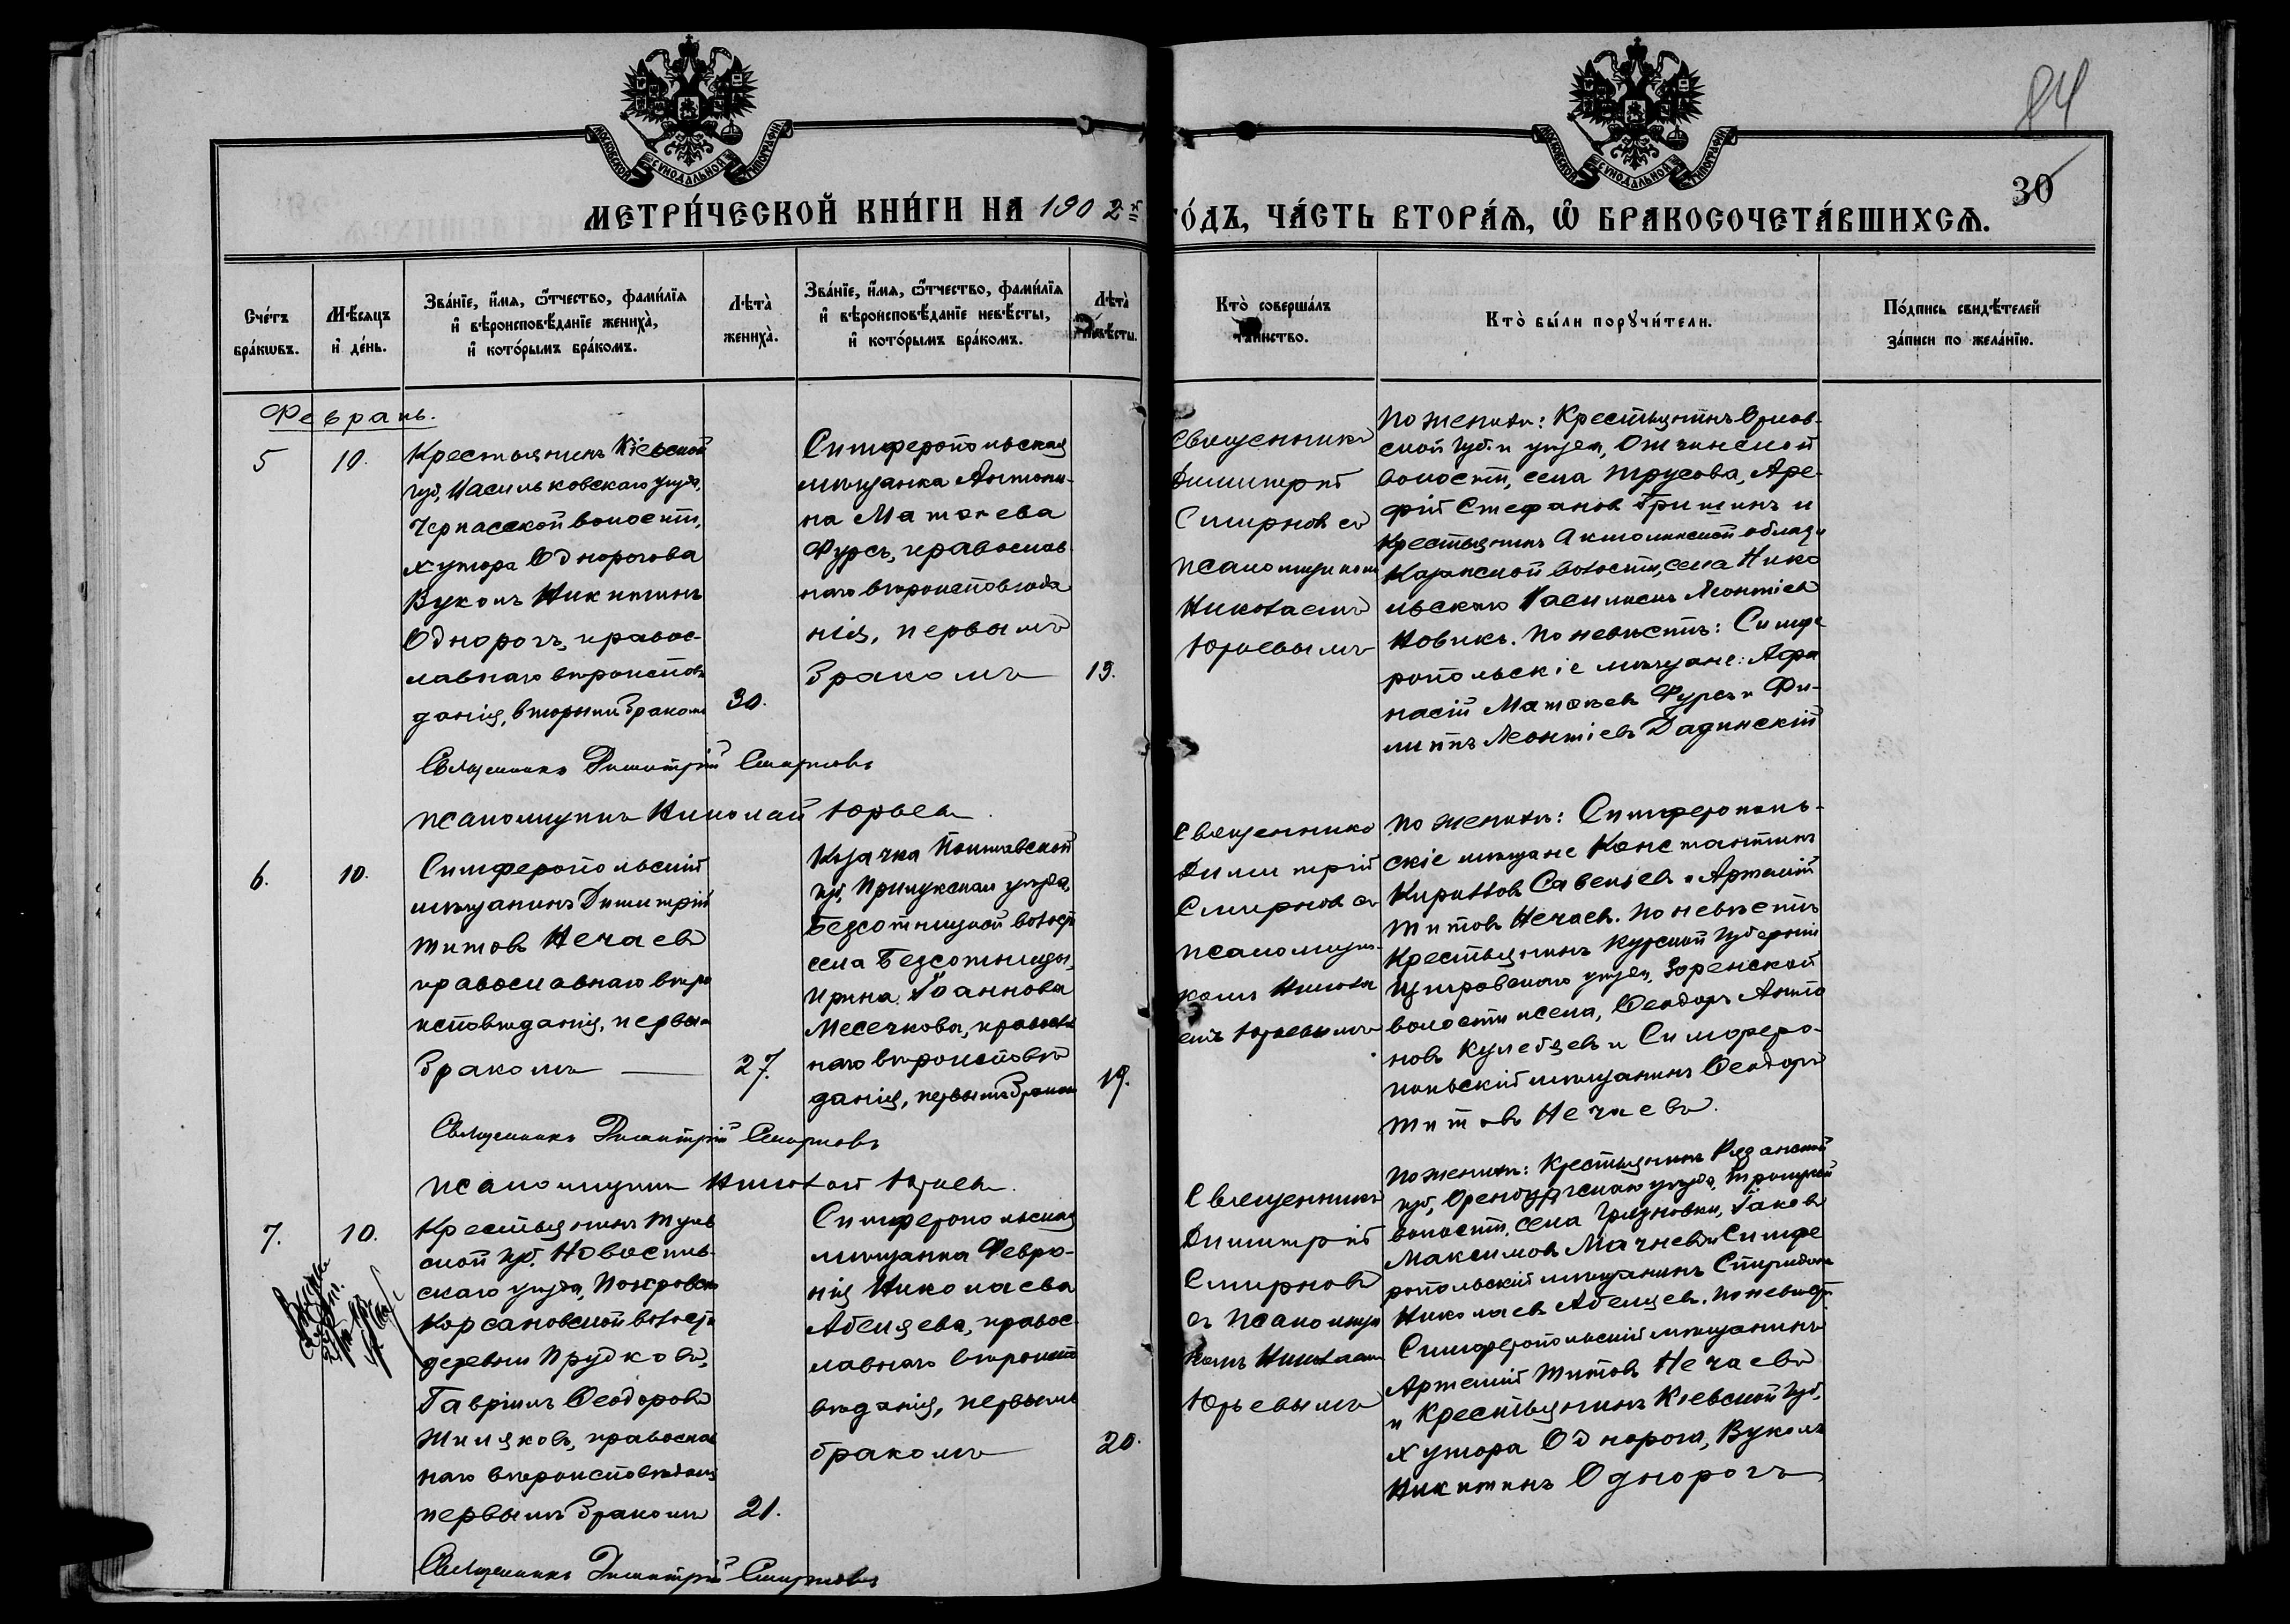 МОСКОВСКОЙ СѴНОДАЛЬНОЙ ТИПОГРАФІИ
МОСКОВСКОЙ СѴНОДАЛЬНОЙ ТИПОГРАФІИ
84
30
МЕТРИ́ЧЕСКОЙ КНИ́ГИ НА 1902 й
ГО́ДЪ, ЧА́СТЬ ВТОРА́Ѧ, Ѿ БРАКОСОЧЕТА́ВШИХСѦ.
Сче́тъ
бра́кѡвъ.
Мѣ́сѧцъ
и҆ де́нь.
Зва́нїе, и҆́мѧ, ѻ҆́тчество, фами́лїѧ
и҆ вѣроисповѣ́данїе жениха̀,
и҆ кото́рымъ бра́комъ.
Лѣта̀
жениха̀.
Зва́нїе, и҆́мѧ, ѻ҆́тчество, фами́лїѧ
и҆ вѣроисповѣ́данїе невѣ́сты,
и҆ кото́рымъ бра́комъ.
Лѣта̀
невѣ́сты.
Кто̀ соверша́лъ
таинство.
Кто̀ бы́ли порꙋчи́тели.
По́дпись свидѣ́телей
за́писи по жела́нїю.
Февраль.
5
10.
Крестьянинъ Кіевской
губ, Васильковскаго уѣзда,
Черкасской волости,
хутора Однорогова
Вуколъ Никитинъ
Однорогъ, правос-
лавнаго вѣроисповѣ
данія, вторымъ бракомъ
30.
Симферопольская
мѣщанка Антони-
на Матѳеева
Фурсъ, православ-
наго вѣроисповѣда
нія, первымъ
бракомъ
19.
Священникъ
Димитрій
Смирновъ съ
псаломщикомъ
Николаемъ
Юрьевымъ
По женихѣ: Крестьянинъ Орлов-
ской губ. и уѣзда,
волости, села Трусова, Аре-
фій Стефановъ Гришинъ и
Крестьянинъ Акмолинской области
волости, села Нико
льскаго Василій Леонтіевъ
Новикъ. По невѣстѣ: Симфе
ропольскіе мѣщане: Афа
насій Матѳеевъ Фурсъ и Фи-
липпъ Леонтіевъ Дадинскій
Священникъ Димитрій Смирновъ
псаломщикъ Николай Юрьевъ.
6.
10.
Симферопольскій
мѣщанинъ Димитрій
Титовъ Нечаевъ
православнаго вѣро
исповѣданія, первымъ
бракомъ
27.
Козачка Полтавской
губ, Прилукскаго уѣзда,
села
Ирина Іоаннова
Месечкова, православ
наго вѣроисповѣ
данія, первымъ бракомъ
19.
Священникъ
Димитрій
Смирновъ съ
псаломщи-
комъ Никола
емъ Юрьевымъ
По женихѣ: Симферополь-
скіе мѣщане Константинъ
Кирилловъ Савельевъ и Артемій
Титовъ Нечаевъ. По невѣстѣ
Крестьянинъ Курской губерніи
Щигровскаго уѣзда,
волости и села, Ѳеодоръ Анто
новъ и Симферо-
польскій мѣщанинъ Ѳеодоръ
Титовъ Нечаевъ.
Священникъ Димитрій Смирновъ
псаломщикъ Николай Юрьевъ.
7.
10.
Крестьянинъ Туль
ской губ. Новосиль-
скаго уѣзда, Покровско
Корсаковской волости
деревни Прудковъ,
Гавріилъ Ѳеодоровъ
Жиляковъ, православ
наго вѣроисповѣданія
первымъ бракомъ
21.
Симферопольская
мѣщанка Февро-
нія Николаева
Абелцева, правос
лавнаго вѣроиспо
вѣданія, первымъ
бракомъ
20.
Священникъ
Димитрій
Смирновъ
съ псаломщи
комъ Николаемъ
Юрьевымъ
По женихѣ: Крестьянинъ Рязанской
волости, села Іаковъ
Максимовъ Мачневъ и Симфе
ропольскій мѣщанинъ Спиридонъ
Николаевъ Абелцевъ. По невѣстѣ
Симферопольскій мѣщанинъ
Артемій Титовъ Нечаевъ
и Крестьянинъ Кіевской губ,
хутора Однорога, Вуколъ
Никитинъ Однорогъ
Священникъ Димитрій Смирновъ